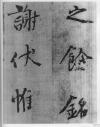 之餘銘
謝伏惟